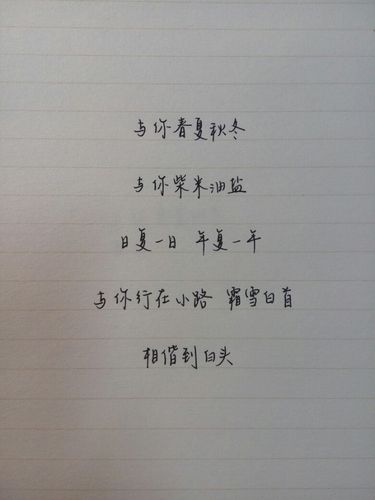 与你春夏秋冬
与你柴米油盐
日复一日 年复一年
与你行在小路 霜雪白首
相偕到白头